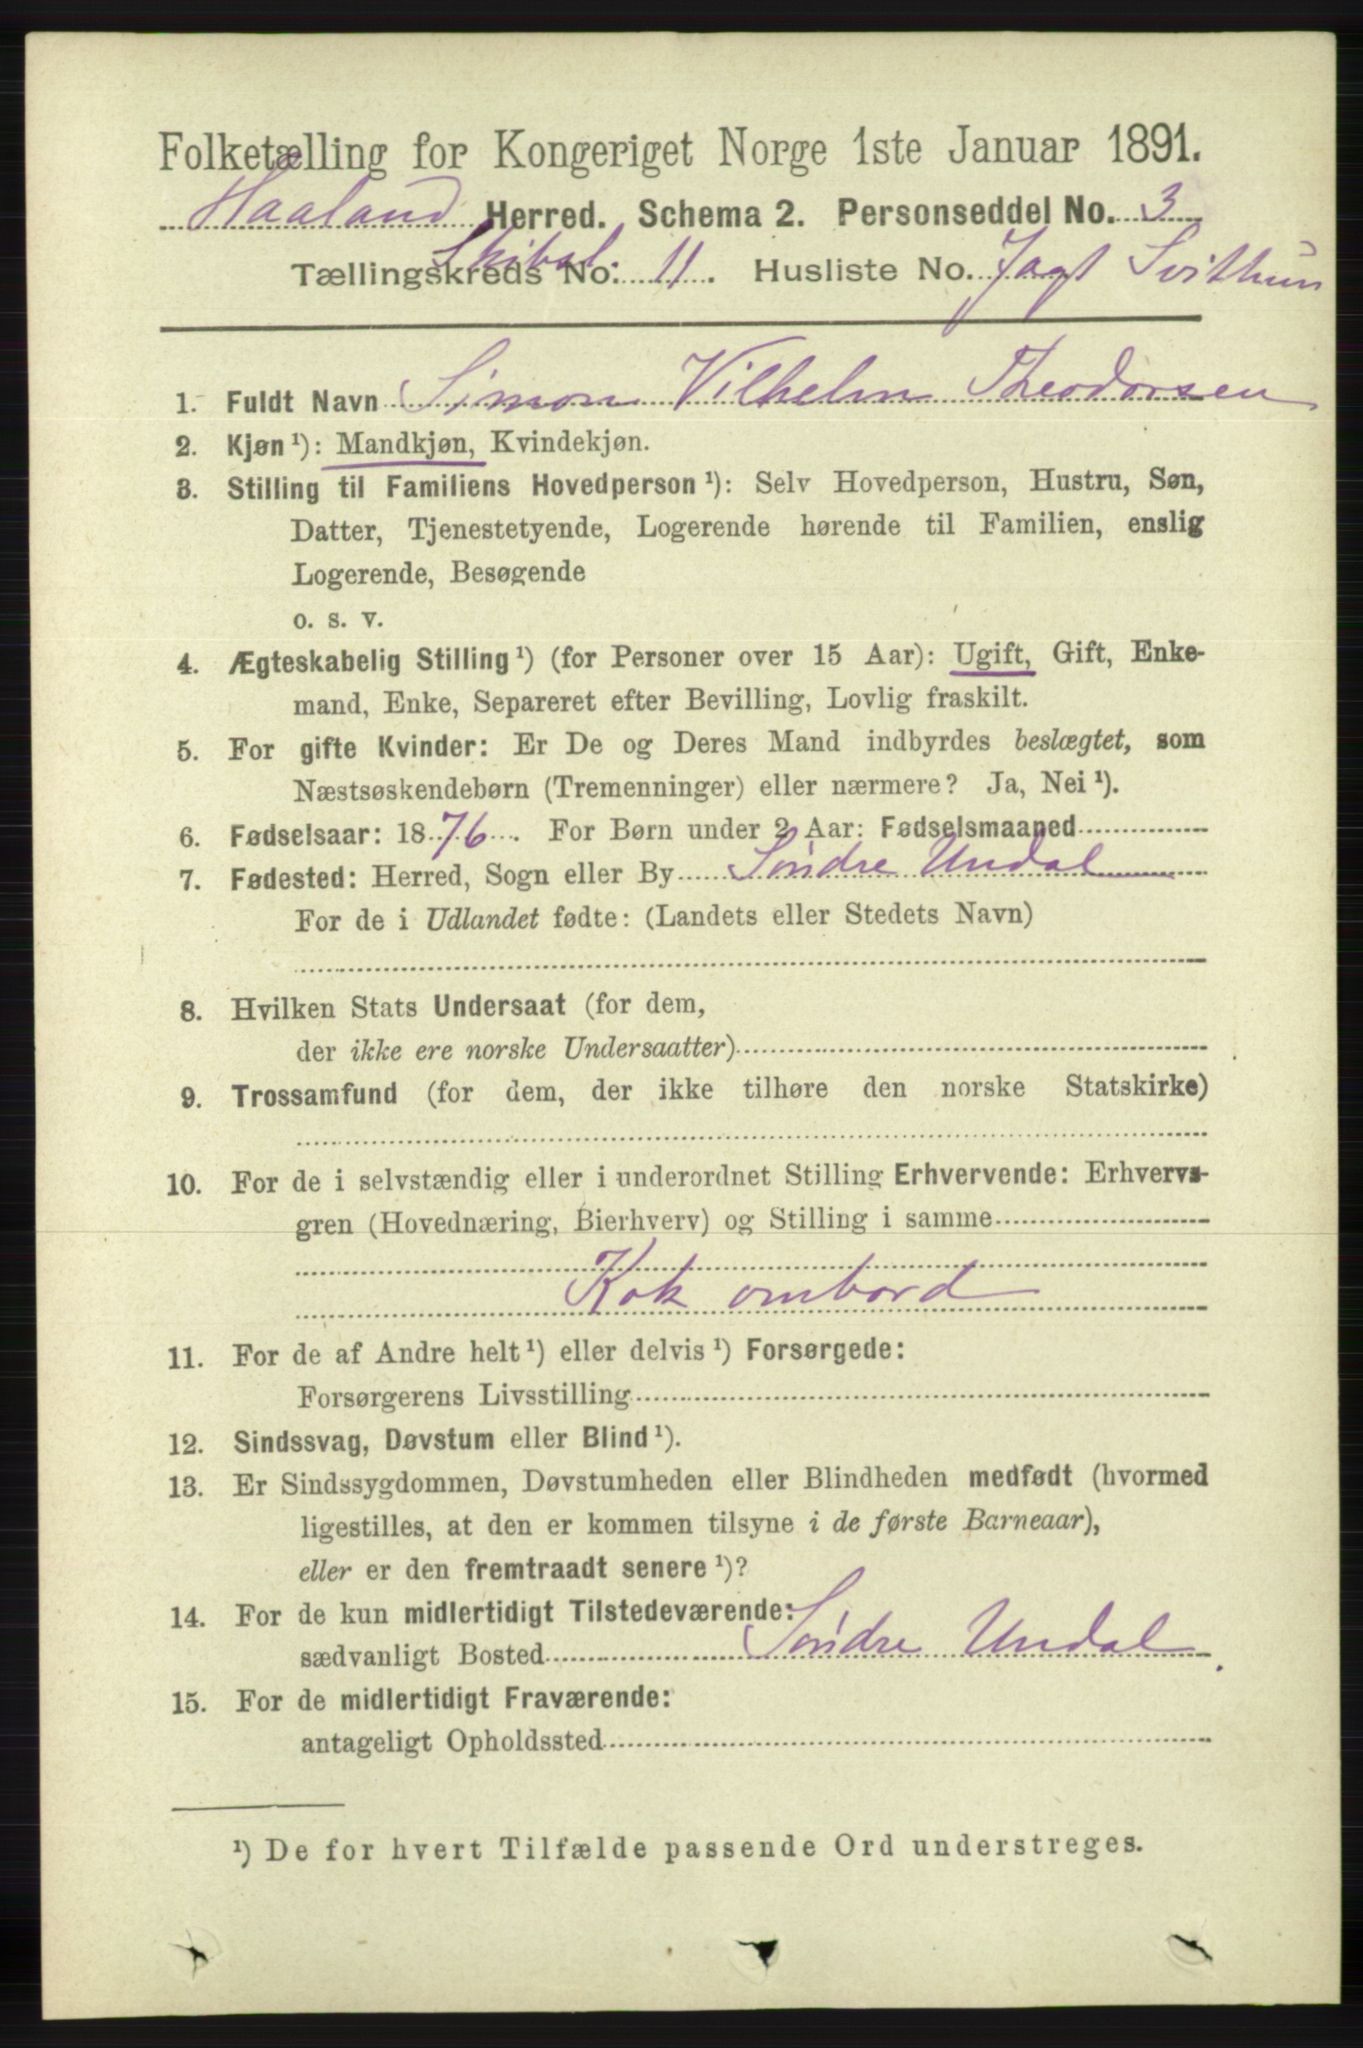 Folketælling for Kongeriget Norge 1ste Januar 1891.
Haaland Herred. Schema 2. Personseddel No. 3
Tællingskreds No. 11. Husliste No. Jagt Svithun
1. Fuldt Navn Simon Vilhelm Theodorsen
2. Kjøn ¹): Mandkjøn, Kvindekjøn.
3. Stilling til Familiens Hovedperson ¹): Selv Hovedperson, Hustru, Søn,
Datter, Tjenestetyende, Logerende hørende til Familien, enslig
Logerende, Besøgende
o. s. v.
4. Ægteskabelig Stilling ¹) (for Personer over 15 Aar): Ugift, Gift, Enke-
mand, Enke, Separeret efter Bevilling, Lovlig fraskilt.
5. For gifte Kvinder: Er De og Deres Mand indbyrdes beslægtet, som
Næstsøskendebørn (Tremenninger) eller nærmere? Ja, Nei ¹).
6. Fødselsaar: 1876. For Børn under 2 Aar: Fødselsmaaned
7. Fødested: Herred, Sogn eller By Søndre Undal
For de i Udlandet fødte: (Landets eller Stedets Navn)
8. Hvilken Stats Undersaat (for dem,
der ikke ere norske Undersaatter)
9. Trossamfund (for dem, der ikke tilhøre den norske Statskirke)
10. For de i selvstændig eller i underordnet Stilling Erhvervende: Erhvervs-
gren (Hovednæring, Bierhverv) og Stilling i samme
Kok ombord
11. For de af Andre helt ¹) eller delvis ¹) Forsørgede:
Forsørgerens Livsstilling
12. Sindssvag, Døvstum eller Blind ¹).
13. Er Sindssygdommen, Døvstumheden eller Blindheden medfødt (hvormed
ligestilles, at den er kommen tilsyne i de første Barneaar),
eller er den fremtraadt senere ¹)?
14. For de kun midlertidigt Tilstedeværende:
sædvanligt Bosted Søndre Undal
15. For de midlertidigt Fraværende:
antageligt Opholdssted
¹) De for hvert Tilfælde passende Ord understreges.